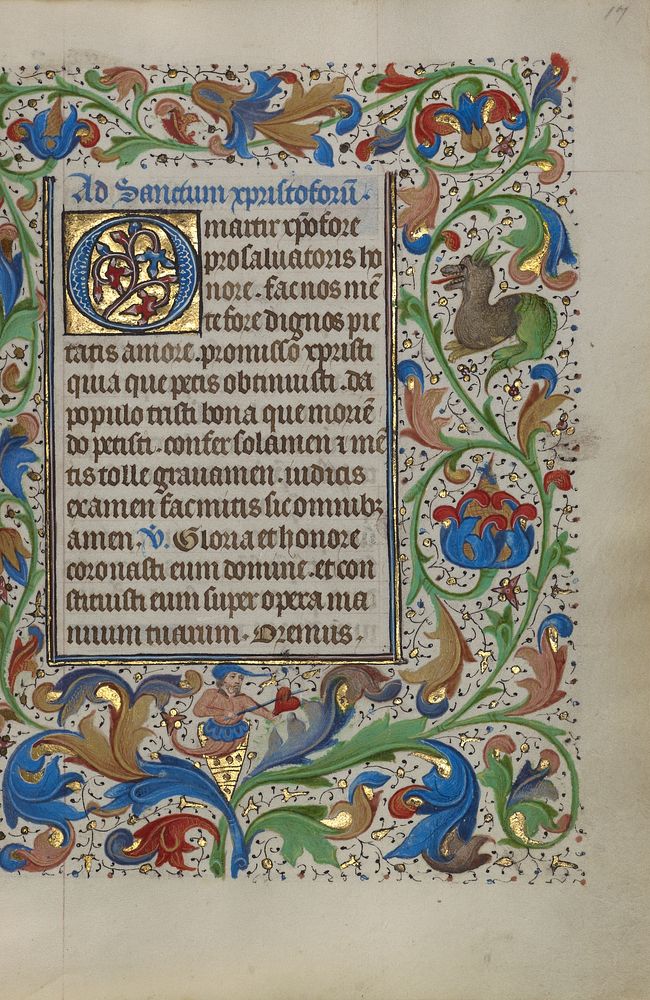 17
Ad Sanctum xpristoforū.
O martir xp̄ofore
pro saluatoris ho
nore. fac nos mē
te fore dignos pie
tatis amore. promisso xpristi
quia que petis obtinuisti. da
populo tristi bona que moriē
do petisti. confer solamen ⁊ mē
tis tolle grauamen. iudicis
examen fac mitis sic omnibꝫ
amen. V̓. Gloria et honore
coronasti eum domine. et con
stituisti eum super opera ma
nuum tuarum. Oremus.